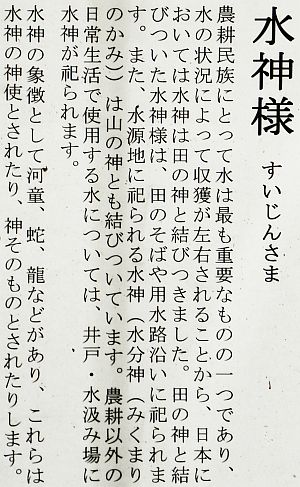 水神様
すいじんさま
農耕民族にとって水は最も重要なものの一つであり、
水の状況によって収獲が左右されることから、日本に
おいては水神は田の神と結びつきました。田の神と結
びついた水神様は、田のそばや用水路沿いに祀られま
す。また、水源地に祀られる水神（水分神（みくまり
のかみ））は山の神とも結びついています。農耕以外の
日常生活で使用する水については、井戸・水汲み場に
水神が祀られます。
水神の象徴として河童、蛇、龍などがあり、これらは
水神の神使とされたり、神そのものとされたりします。